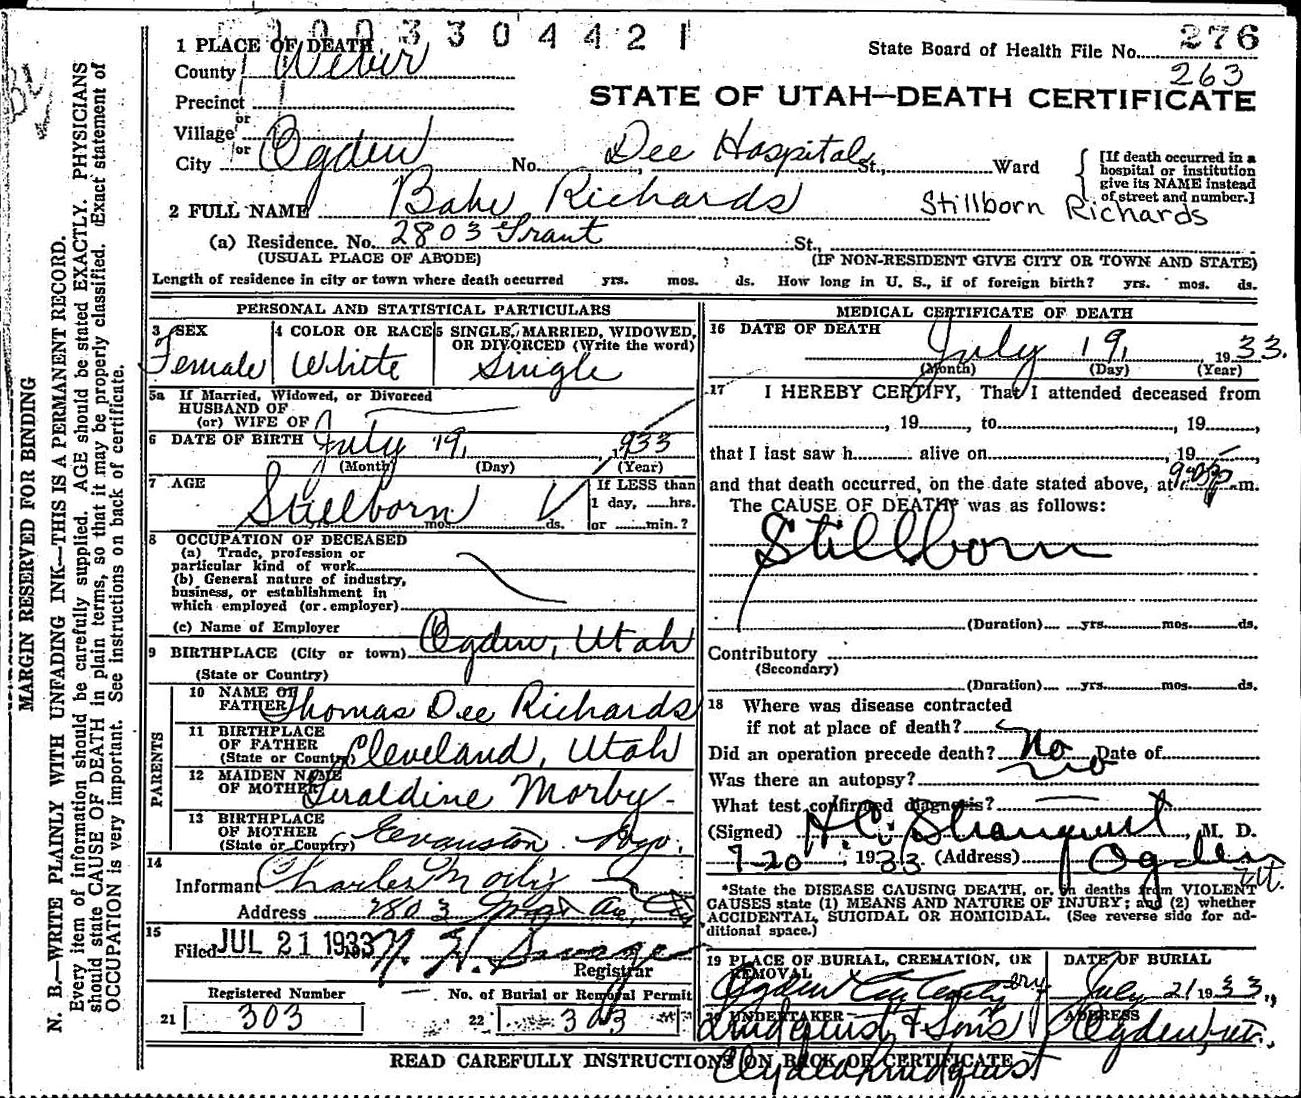 1003304421
State Board of Health File No. 276
263
1 PLACE OF DEATH
County Weber
STATE OF UTAH—DEATH CERTIFICATE
Precinct
or
Village
or
City Ogden No. Dee Hospital St., Ward
[If death occurred in a hospital or institution give its NAME instead of street and number.]
2 FULL NAME Babe Richards Stillborn Richards
(a) Residence. No. 2803 Grant St.,
(USUAL PLACE OF ABODE) (IF NON-RESIDENT GIVE CITY OR TOWN AND STATE)
Length of residence in city or town where death occurred yrs. mos. ds. How long in U. S., if of foreign birth? yrs. mos. ds.
PERSONAL AND STATISTICAL PARTICULARS
3 SEX Female
4 COLOR OR RACE White
5 SINGLE, MARRIED, WIDOWED, OR DIVORCED (Write the word) Single
5a If Married, Widowed, or Divorced
HUSBAND OF
(or) WIFE OF
6 DATE OF BIRTH July 19, 1933
(Month) (Day) (Year)
7 AGE Stillborn mos. ds.
If LESS than
1 day, hrs.
or min.?
8 OCCUPATION OF DECEASED
(a) Trade, profession or
particular kind of work
(b) General nature of industry,
business, or establishment in
which employed (or employer)
(c) Name of Employer
9 BIRTHPLACE (City or town) Ogden, Utah
(State or Country)
PARENTS
10 NAME OF FATHER Thomas Dee Richards
11 BIRTHPLACE OF FATHER (State or Country) Cleveland, Utah
12 MAIDEN NAME OF MOTHER Geraldine Morby
13 BIRTHPLACE OF MOTHER (State or Country) Evanston Wyo.
14
Informant Charles Morby
Address 2803 Ave, City
15
Filed JUL 21 1933 N. H. Savage
Registrar
Registered Number
21 303
No. of Burial or Removal Permit
22 303
MEDICAL CERTIFICATE OF DEATH
16 DATE OF DEATH
July 19, 1933.
(Month) (Day) (Year)
17 I HEREBY CERTIFY, That I attended deceased from
, 19 , to , 19 ,
that I last saw h alive on , 19
and that death occurred, on the date stated above, at m.
The CAUSE OF DEATH* was as follows:
Stillborn
(Duration) yrs. mos. ds.
Contributory
(Secondary)
(Duration) yrs. mos. ds.
18 Where was disease contracted
if not at place of death?
Did an operation precede death? No Date of
Was there an autopsy? No
What test confirmed diagnosis?
(Signed) H. C. Stranquist, M. D.
7-20, 1933 (Address) Ogden Ut.
*State the DISEASE CAUSING DEATH, or, in deaths from VIOLENT
CAUSES state (1) MEANS AND NATURE OF INJURY; and (2) whether
ACCIDENTAL, SUICIDAL OR HOMICIDAL. (See reverse side for ad-
ditional space.)
19 PLACE OF BURIAL, CREMATION, OR REMOVAL
Ogden City Cemetery
DATE OF BURIAL
July 21 1933,
20 UNDERTAKER
Lindquist & Sons
Clyde Lindquist
ADDRESS
Ogden, Ut.
READ CAREFULLY INSTRUCTIONS ON BACK OF CERTIFICATE
MARGIN RESERVED FOR BINDING
N. B.—WRITE PLAINLY WITH UNFADING INK—THIS IS A PERMANENT RECORD.
Every item of information should be carefully supplied. AGE should be stated EXACTLY. PHYSICIANS
should state CAUSE OF DEATH in plain terms, so that it may be properly classified. Exact statement of
OCCUPATION is very important. See instructions on back of certificate.